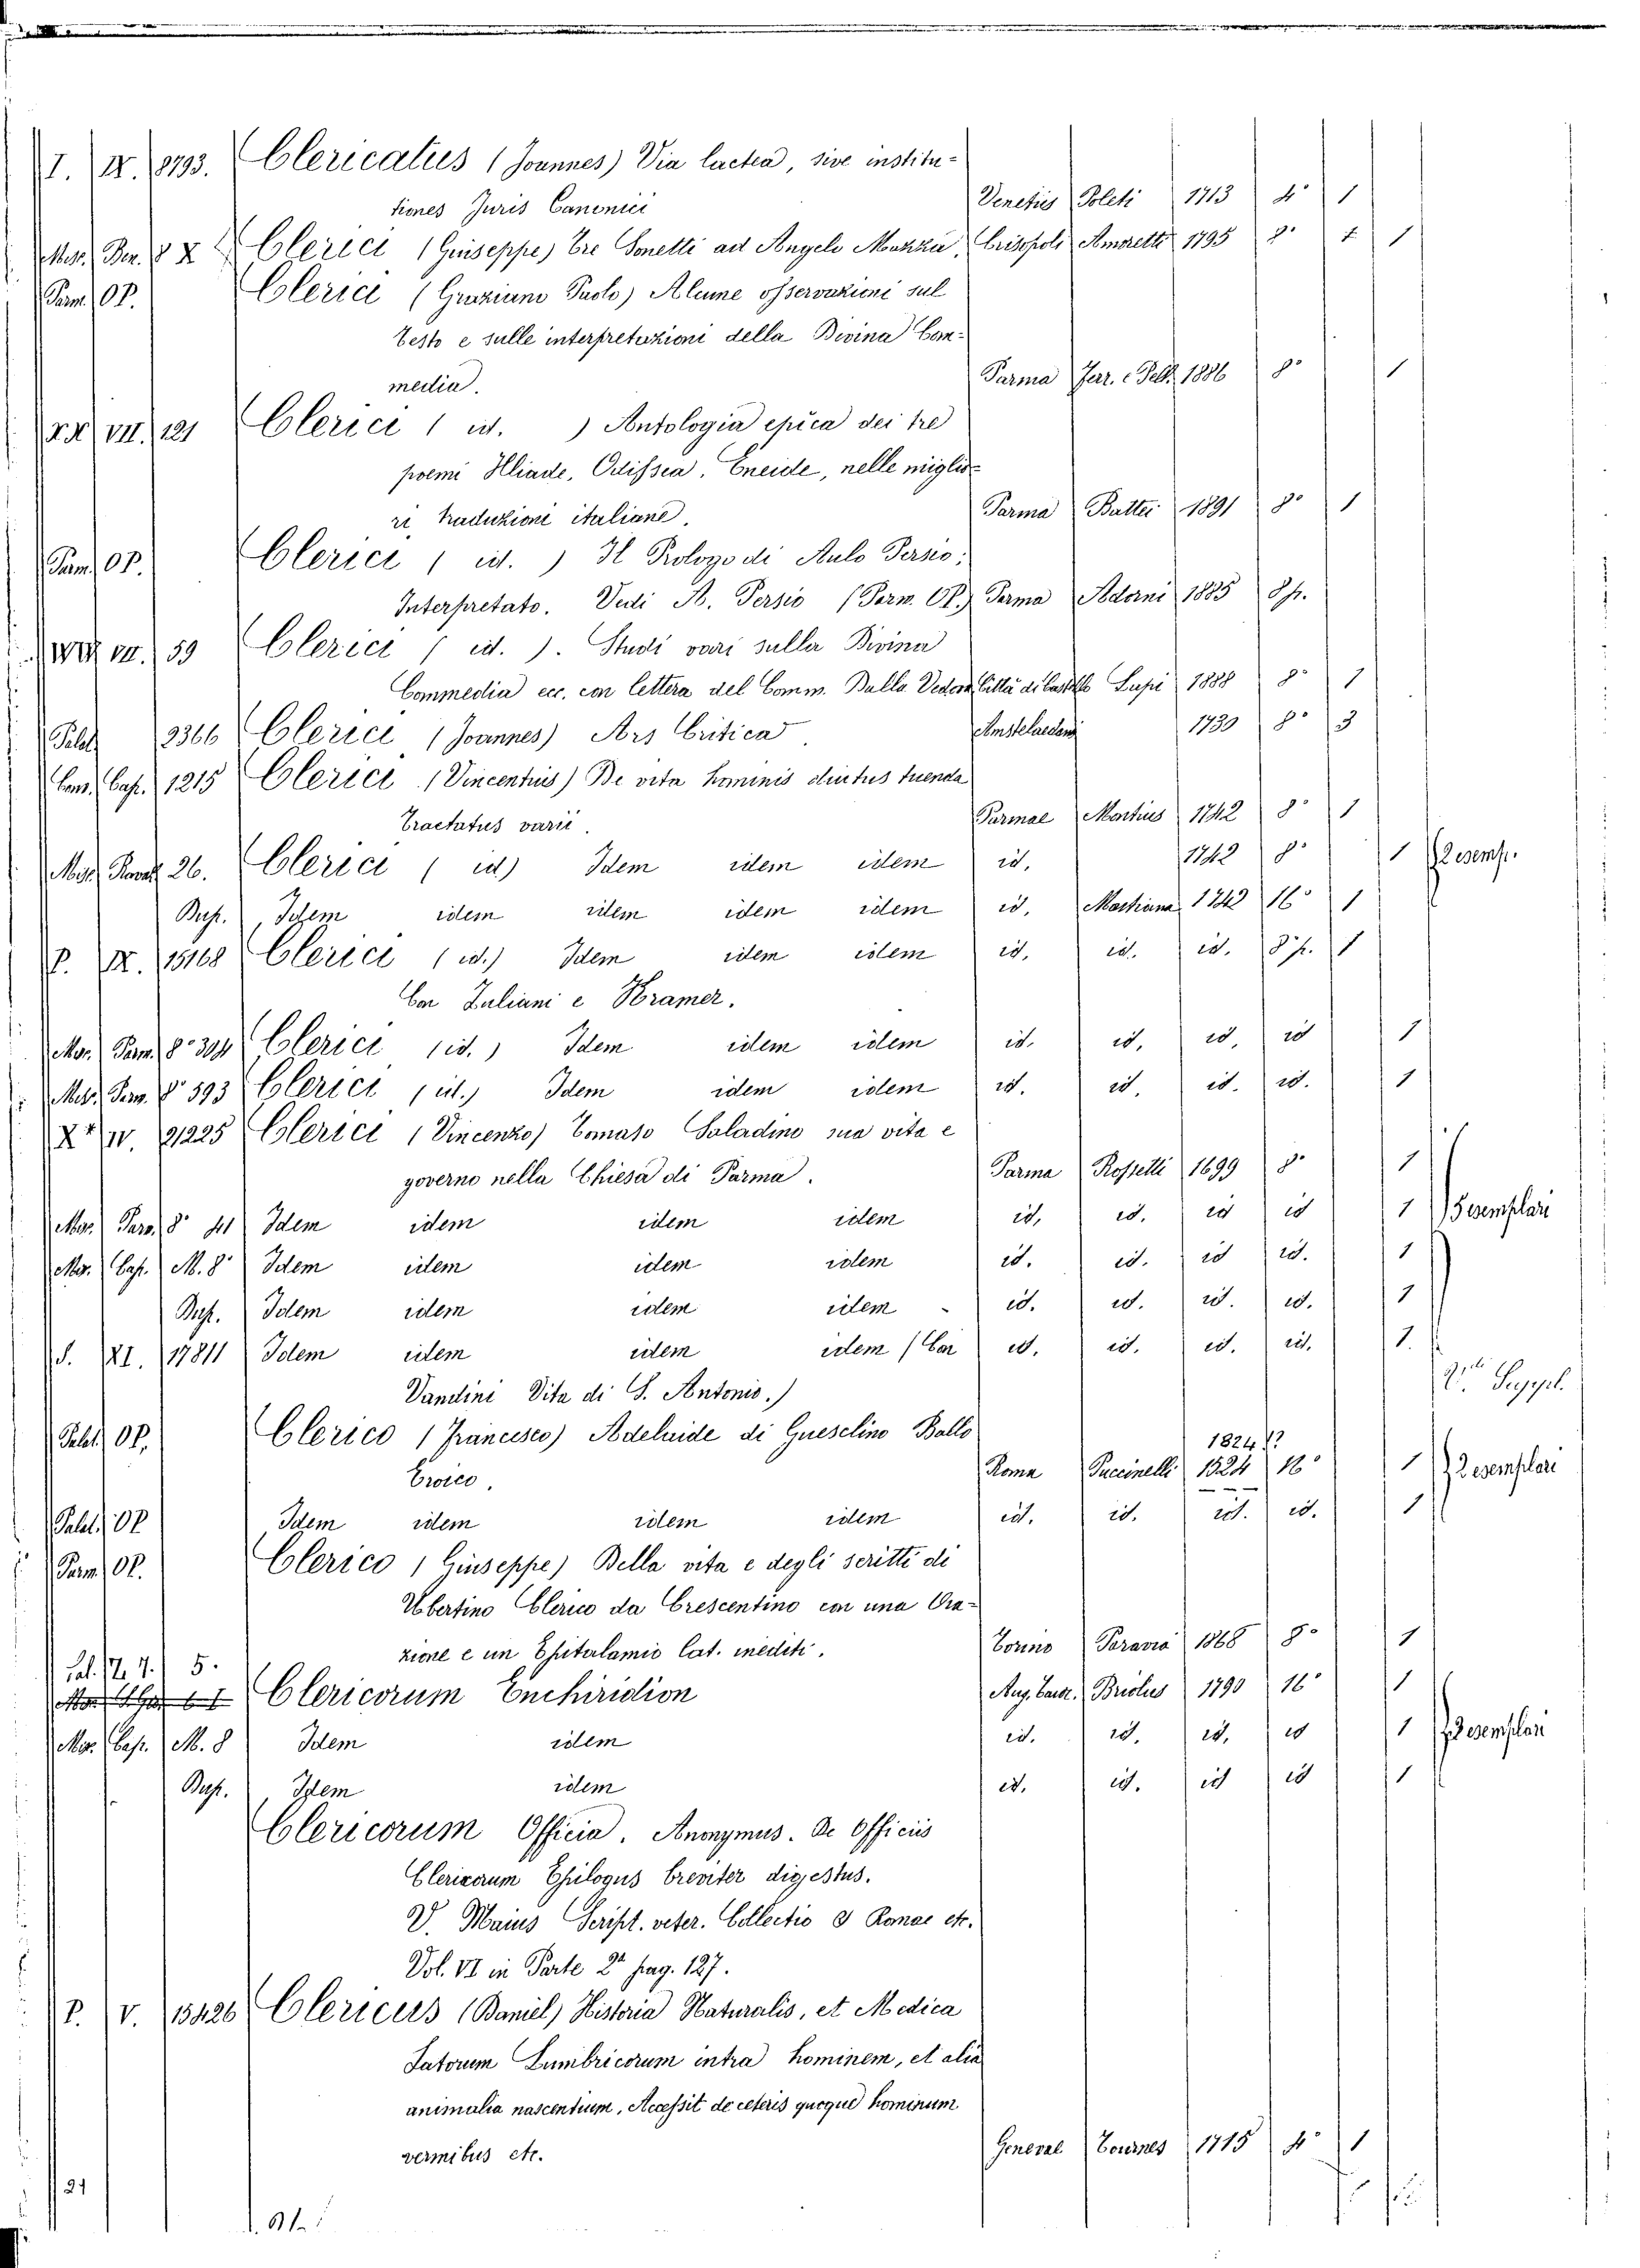 I. IX. 8793. Clericatus (Joannes) Via lactea, sive institu-
tiones Juris Canonici Venetiis Poleti 1713 4° 1
Clerici (Giuseppe) Tre Sonetti ad Angelo Mazza, Crisopoli Amoretti 1795 8° 1
Parm. OP. Clerici (Graziano Paolo) Alcune osservazioni sul
testo e sulle interpretazioni della Divina Com-
media. Parma Ferr. e Pell. 1886 8° 1
VII. 121 Clerici ( id. ) Antologia epica dei tre
poemi Iliade, Odissea, Eneide, nelle miglio-
ri traduzioni italiane. Parma Battei 1891 8° 1
Parm. OP. Clerici ( id. ) Il Prologo di Aulo Persio;
Interpretato. Vedi A. Persio (Parm. OP.) Parma Adorni 1885 8p.
VII. 59 Clerici ( id. ). Studi vari sulla Divina
Commedia ecc. con lettera del Comm. Dalla Vedova Città di Castello Lapi 1888 8° 1
Palat. 2366 Clerici (Joannes) Ars Critica Amstelaedami 1730 8° 3
Cap. 1215 Clerici (Vincentius) De vita hominis diutius tuenda
Tractatus varii. Parmae Montius 1742 8° 1
26. Clerici ( id) Idem idem idem id. 1742 8° 1 2 esemp.
Bup. Idem idem idem idem idem id. 1742 16° 1
P. IX. 15168 Clerici (id.) Idem idem idem id. id. id. 8°p. 1
Con Zuliani e Kramer.
Mor. Parm. 8° 394 Clerici (id.) Idem idem idem id. id. id. id 1
Parm. 8° 593 Clerici (id.) Idem idem idem id. id. id. id. 1
IV. 21225 Clerici (Vincenzo) Tomaso Saladino sua vita e
governo nella Chiesa di Parma. Parma Rossetti 1699 8° 1
Mor. Parm. 8° 41 Idem idem idem idem id. id. id id 1 5 esemplari
Mor. Cap. M. 8° Idem idem idem idem id. id. id id. 1
Bup. Idem idem idem idem id. id. id. id. 1
S. XI. 17811 Idem idem idem idem (Con id. id. id. id. 1.
Vandini Vita di S. Antonio.) V. Suppl.
Palat. OP. Clerico (Francesco) Adelaide di Guesclino Ballo 1824 12
Eroico. Roma Puccinelli 1824 12° 1 2 esemplari
Palat. OP. Idem idem idem idem id. id. id. id. 1
Parm. OP. Clerico (Giuseppe) Della vita e degli scritti di
Ubertino Clerico da Crescentino con una Ora-
zione e un Epitalamio lat. inediti. Torino Paravia 1868 8° 1
5. Clericorum Enchiridion Aug. Taur. Briolus 1790 16° 1
Mor. Cap. M. 8 Idem idem id. id. id. id 1 3 esemplari
Bup. Idem idem id. id. id id 1
Clericorum Officia. Anonymus. De Officiis
Clericorum Epilogus breviter digestus.
V. Maius Script. veter. Collectio & Romae etc.
Vol. VI in Parte 2ª pag. 127.
P. V. 15426 Clericus (Daniel) Historia Naturalis, et Medica
Latorum Lumbricorum intra hominem, et alia
animalia nascentium, Accessit de ceteris quoque hominum
vermibus etc. Genevae Tournes 1715 4° 1
21